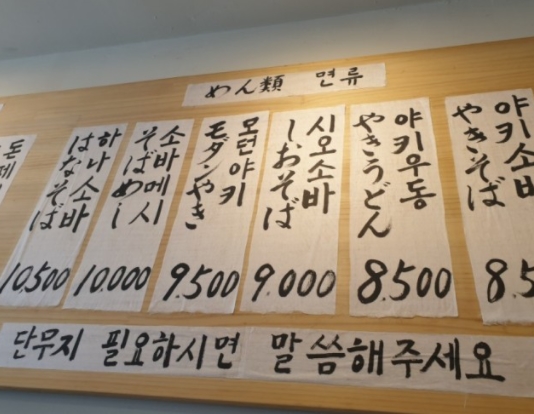 めん類 면류
야키소바
やきそば
8.5
야키우동
やきうどん
8.500
시오소바
しおそば
9.000
모던야키
モダンやき
9.500
소바메시
そばめし
10.000
하나소바
はなそば
10.500
돈
단무지 필요하시면 말씀해주세요